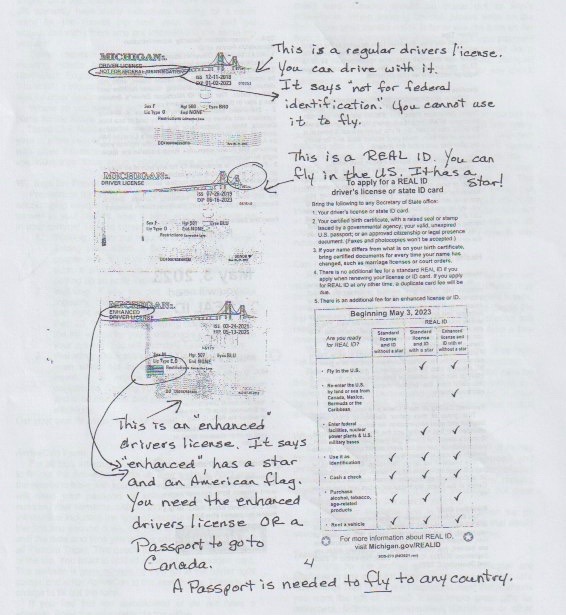 MICHIGAN
DRIVER LICENSE
NOT FOR FEDERAL IDENTIFICATION
ISS 12-11-2018
EXP 01-02-2023
Sex F Hgt 500 Eyes BRO
Lic Type O End NONE
Restrictions Corrective Lens
This is a regular drivers license.
You can drive with it.
It says "not for federal
identification." You cannot use
it to fly.
MICHIGAN
DRIVER LICENSE
Hgt 501 Eyes BLU
Lic Type O End NONE
Restrictions Corrective Lens
This is a REAL ID. You can
fly in the US. It has a
star!
To apply for a REAL ID
driver's license or state ID card
Bring the following to any Secretary of State office:
1. Your driver's license or state ID card.
2. Your certified birth certificate, with a raised seal or stamp
issued by a governmental agency; your valid, unexpired
U.S. passport; or an approved citizenship or legal presence
document. (Faxes and photocopies won't be accepted.)
3. If your name differs from what is on your birth certificate,
bring certified documents for every time your name has
changed, such as marriage licenses or court orders.
4. There is no additional fee for a standard REAL ID if you
apply when renewing your license or ID card. If you apply
for REAL ID at any other time, a duplicate card fee will be
due.
5. There is an additional fee for an enhanced license or ID.
MICHIGAN
ENHANCED
DRIVER LICENSE
ISS 03-24-2021
EXP 05-13-2025
Hgt 507 Eyes BLU
Lic Type E,O End NONE
Restrictions Corrective Lens
This is an "enhanced"
drivers license. It says
"enhanced", has a star
and an American flag.
You need the enhanced
drivers license OR a
Passport to go to
Canada.
Beginning May 3, 2023
REAL ID
Are you ready
for REAL ID?
Standard
license
and ID
without a star
Standard
license
and ID
with a star
Enhanced
license and
ID with or
without a star
• Fly in the U.S. ✓ ✓
• Re-enter the U.S.
by land or sea from
Canada, Mexico,
Bermuda or the
Caribbean ✓
• Enter federal
facilities, nuclear
power plants & U.S.
military bases ✓ ✓
• Use it as
identification ✓ ✓ ✓
• Cash a check ✓ ✓ ✓
• Purchase
alcohol, tobacco,
age-related
products ✓ ✓ ✓
• Rent a vehicle ✓ ✓ ✓
For more information about REAL ID,
visit Michigan.gov/REALID
4
A Passport is needed to fly to any country.